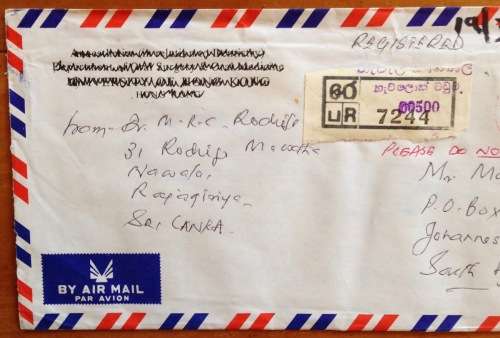 19/
REGISTERED
හැව්ලොක් ටවුම
00500
LR 7244
from - Dr. M-R-C. Rodrigo
31 Rodrigo Mawatha
Nawala,
Rajagiriya,
SRI LANKA.
PLEASE DO NO
Mr. Ma
P.O. Box
Johannes
South
BY AIR MAIL
PAR AVION